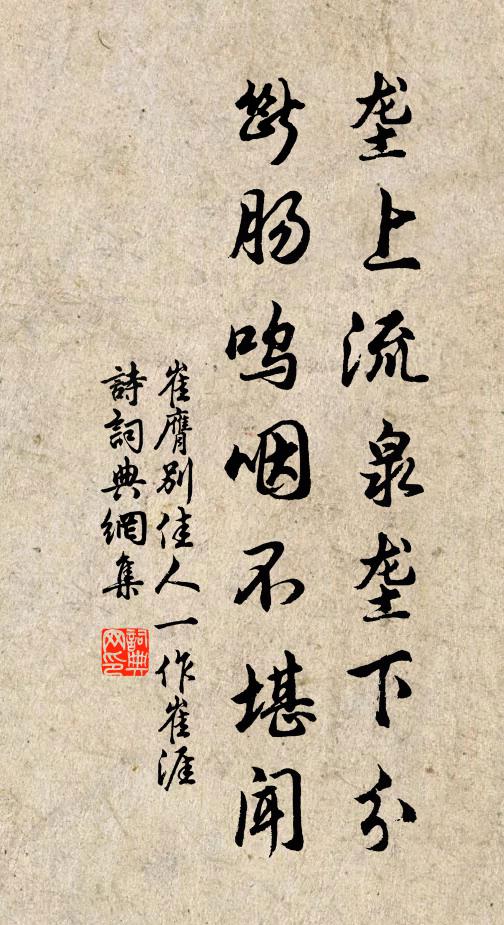 垄上流泉垄下分
断肠鸣咽不堪闻
崔膺别佳人一作崔涯
詩詞典網集
詞典网印